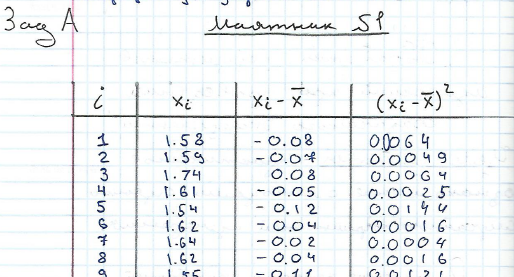 Зад А Маятник S1
i xᵢ xᵢ - x̅ (xᵢ - x̅)²
1 1.58 -0.08 0.0064
2 1.59 -0.07 0.0049
3 1.74 0.08 0.0064
4 1.61 -0.05 0.0025
5 1.54 -0.12 0.0144
6 1.62 -0.04 0.0016
7 1.64 -0.02 0.0004
8 1.62 -0.04 0.0016
9 1.55 -0.11 0.0121